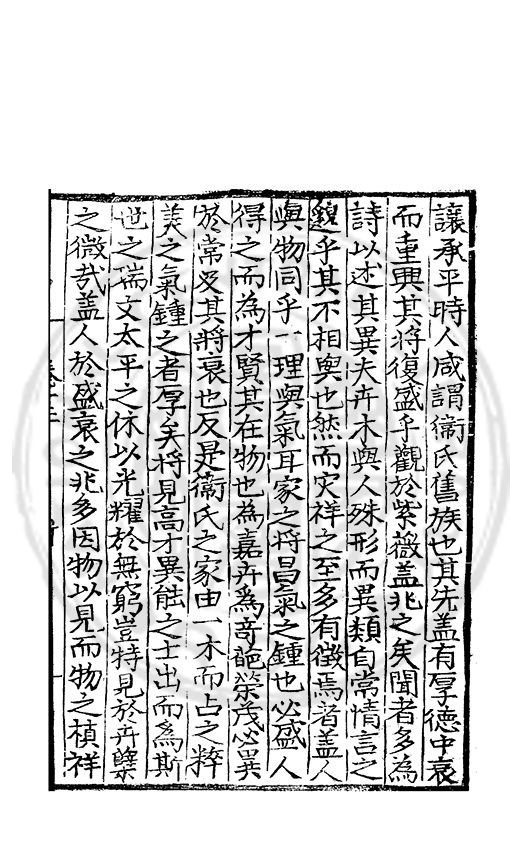 讓承平時人咸謂衞氏舊族也其先盖有厚德中衰
而重興其将復盛乎觀於紫薇盖兆之矣聞者多為
詩以述其異夫卉木與人殊形而異類自常情言之
邈乎其不相與也然而灾祥之至多有徵焉者盖人
與物同乎一理與氣耳家之将昌氣之鍾也必盛人
得之而為才賢其在物也為嘉卉為奇葩榮茂必異
於常及其將衰也反是衞氏之家由一木而占之粹
美之氣鍾之者厚矣将見高才異能之士出而為斯
世之瑞文太平之休以光耀於無窮豈特見於卉櫱
之微㦲盖人於盛衰之兆多因物以見而物之楨祥